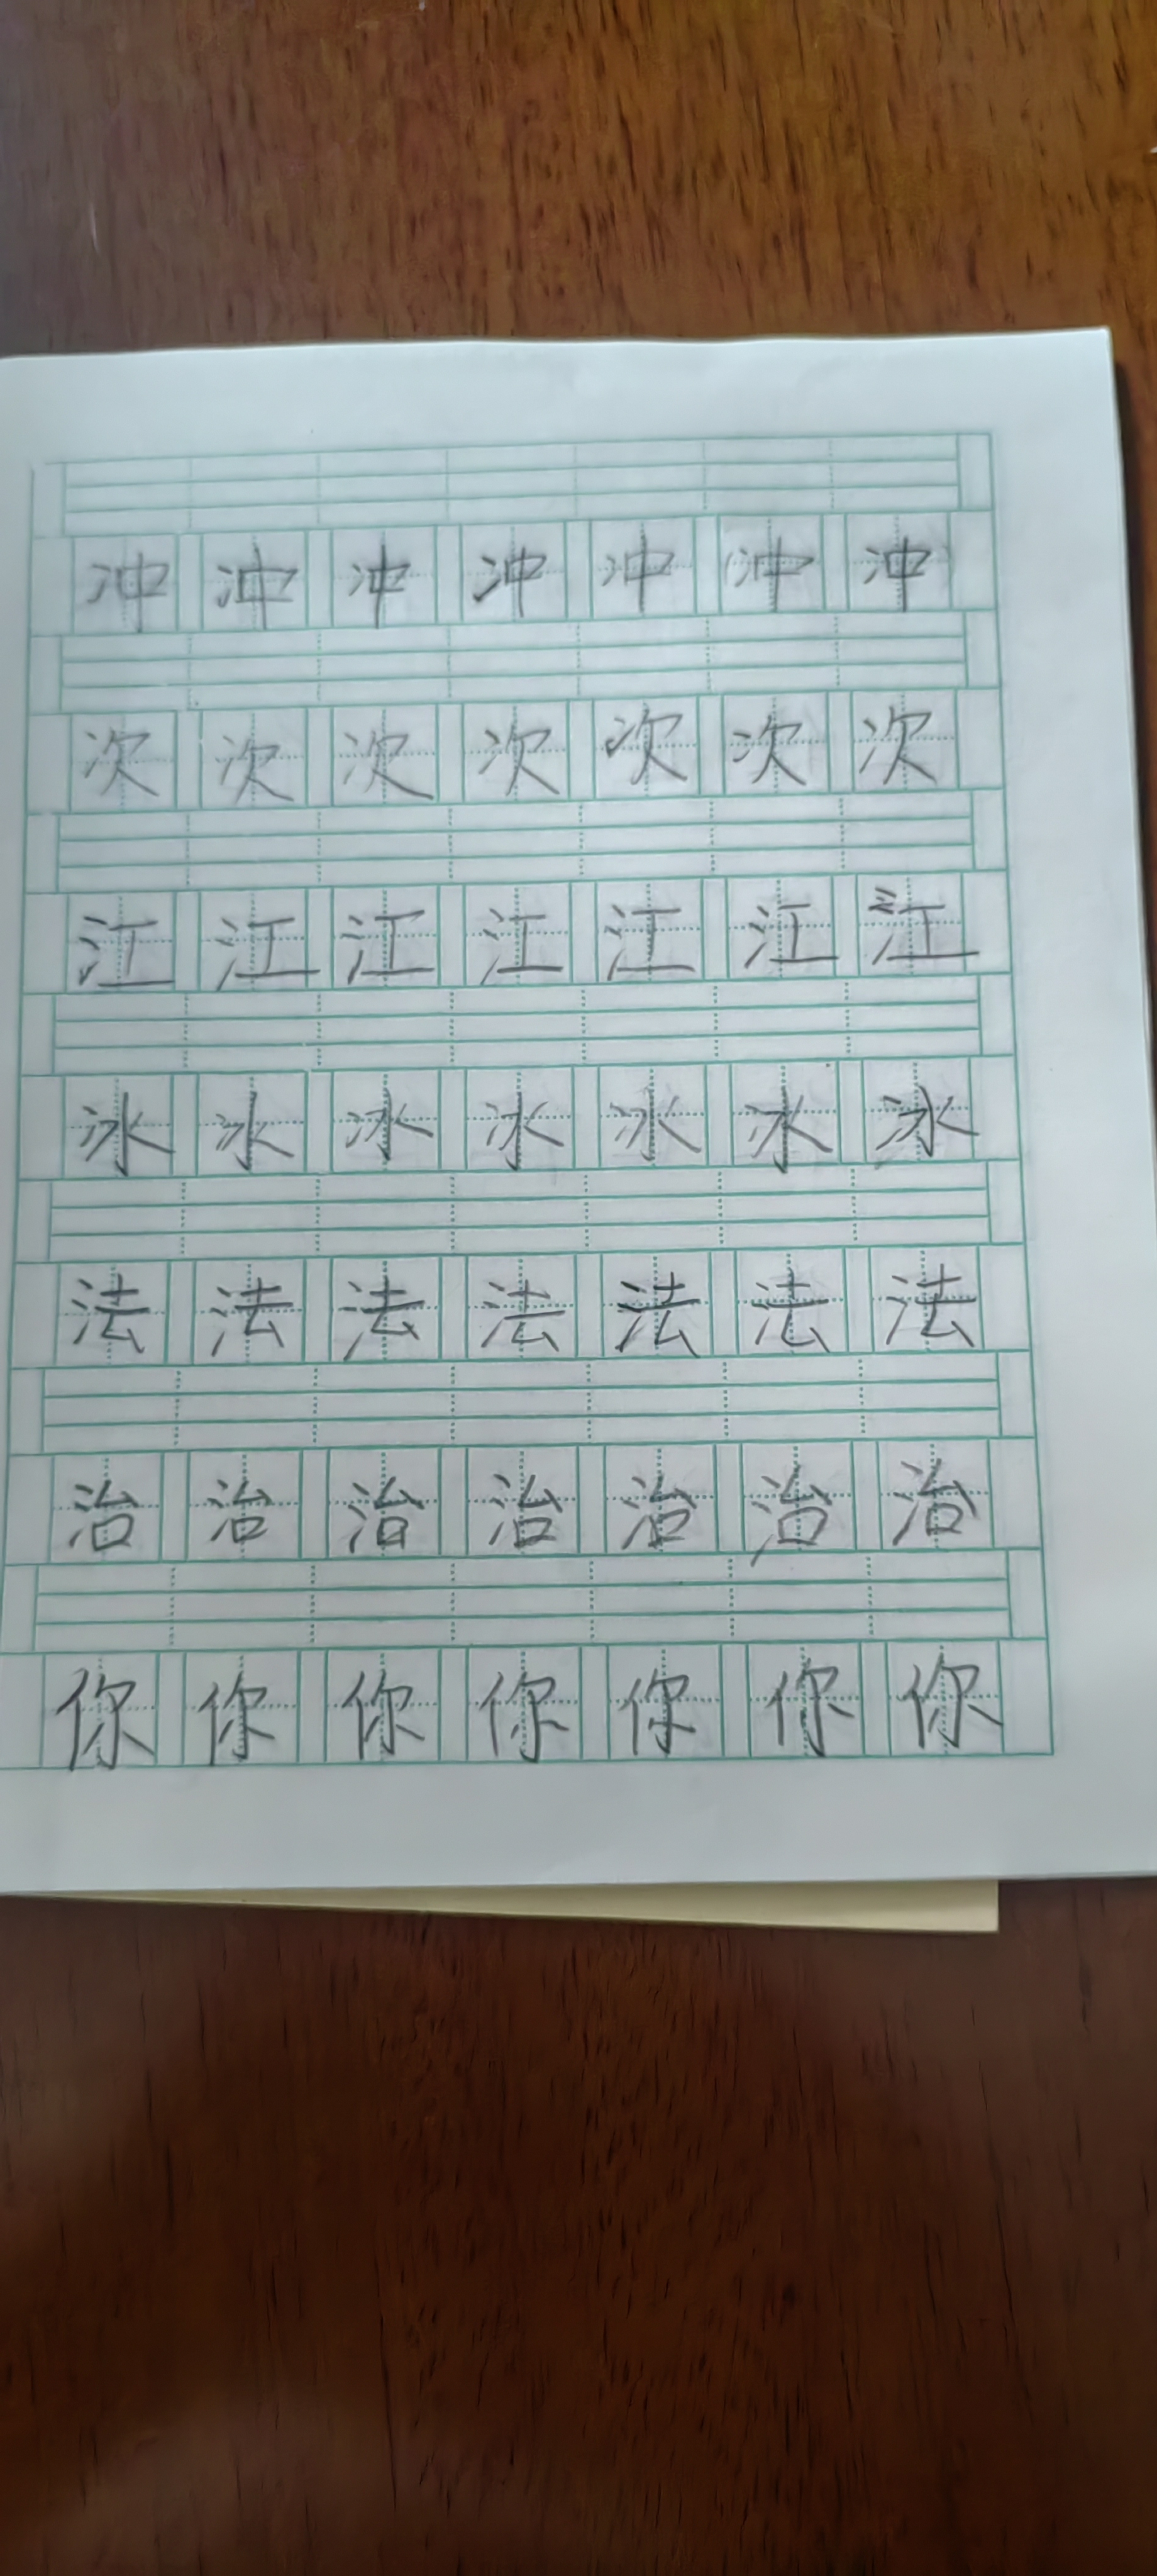 冲冲冲冲冲冲冲
次次次次次次次
江江江江江江江
冰冰冰冰冰冰冰
法法法法法法法
治治治治治治治
你你你你你你你